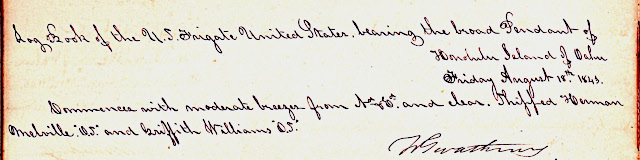 Log Book of the U.S. Frigate United States, bearing the broad Pendant of
Honolulu Island of Oahu
Friday August 18th 1843.
Commences with moderate breezes from Nd & Ed and clear. Shipped Herman
Melville O.S. and Griffith Williams O.S.